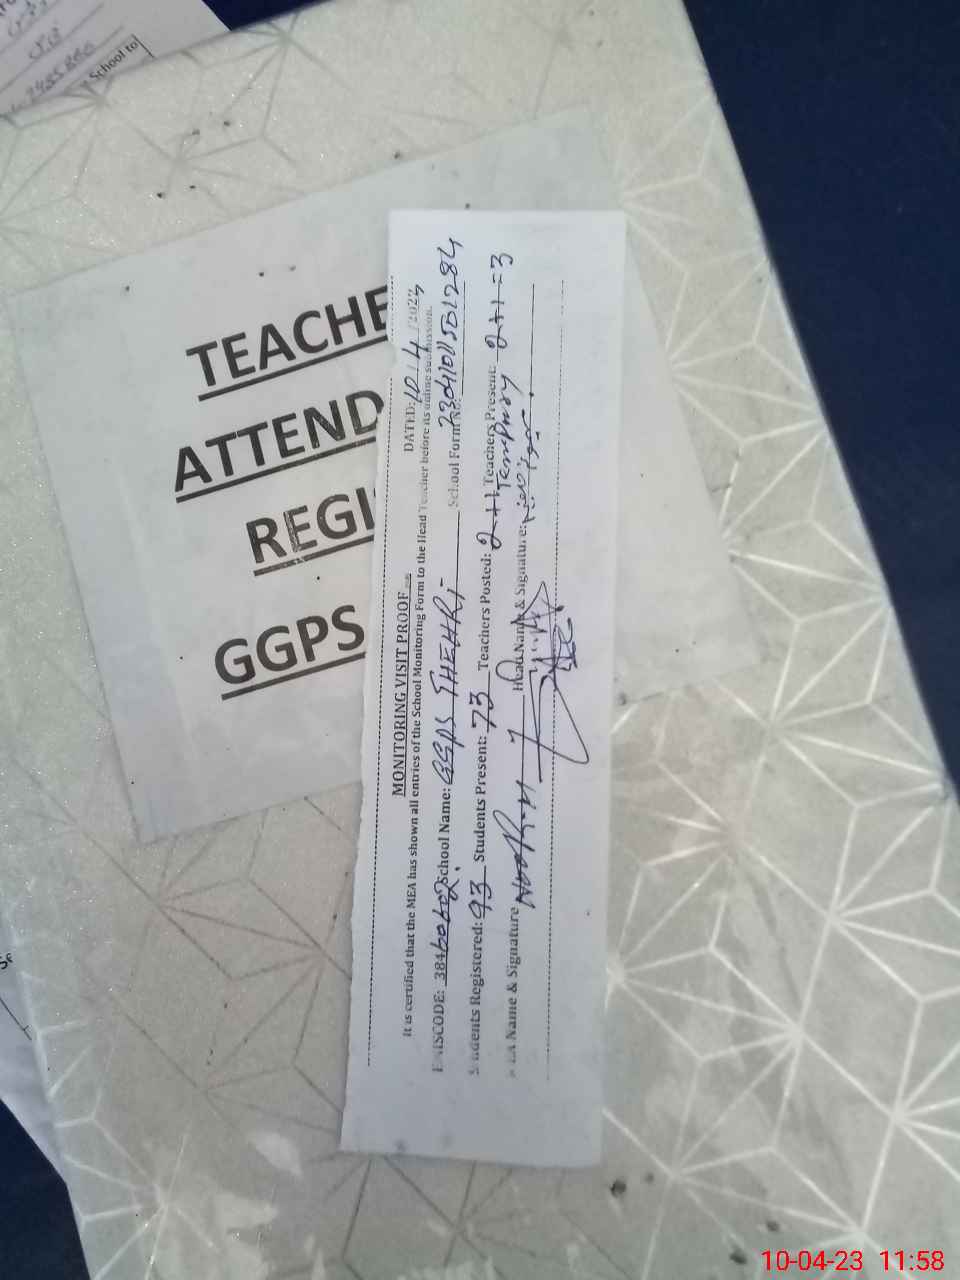 School to
TEACHE
ATTEND
REGI
GGPS
MONITORING VISIT PROOF
DATED: 10/4/2023
It is certified that the MEA has shown all entries of the School Monitoring Form to the Head Teacher before its online submission.
EMISCODE: 38460602 School Name: GGPS THEHRI School Form No:
Students Registered: 93 Students Present: 73 Teachers Posted: 2+1 Teachers Present: 2+1=3
Temprory
MEA Name & Signature Head Name & Signature:
10-04-23 11:58